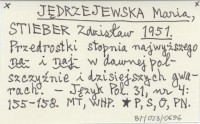 JĘDRZEJEWSKA Maria,
STIEBER Zdzisław 1951.
Przedrostki stopnia najwyższego
na- i naj- w dawnej pol-
szczyźnie i dzisiejszych gwa-
rach. – Język Pol. 31, nr 4:
155-158. MT, WHP. * P, S, O, PN.
BM/073/0696